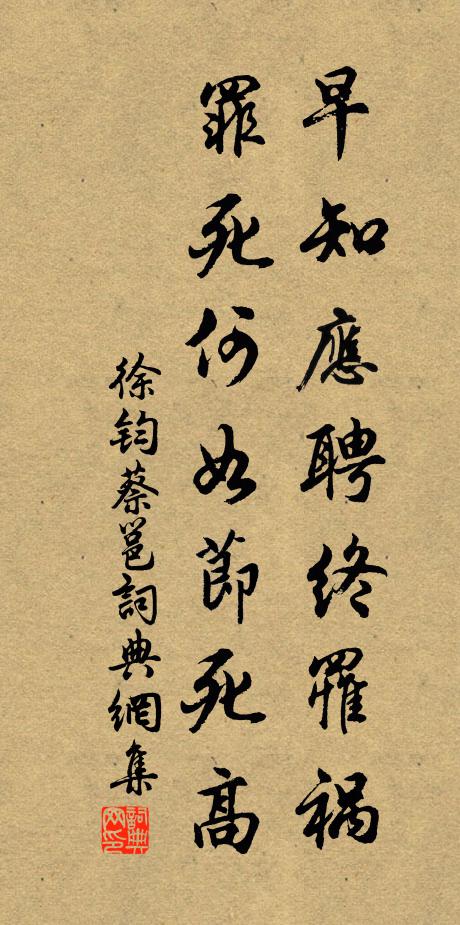 早知應聘終罹禍
罪死何如節死高
徐鈞蔡邕詞典網集
詞典網印